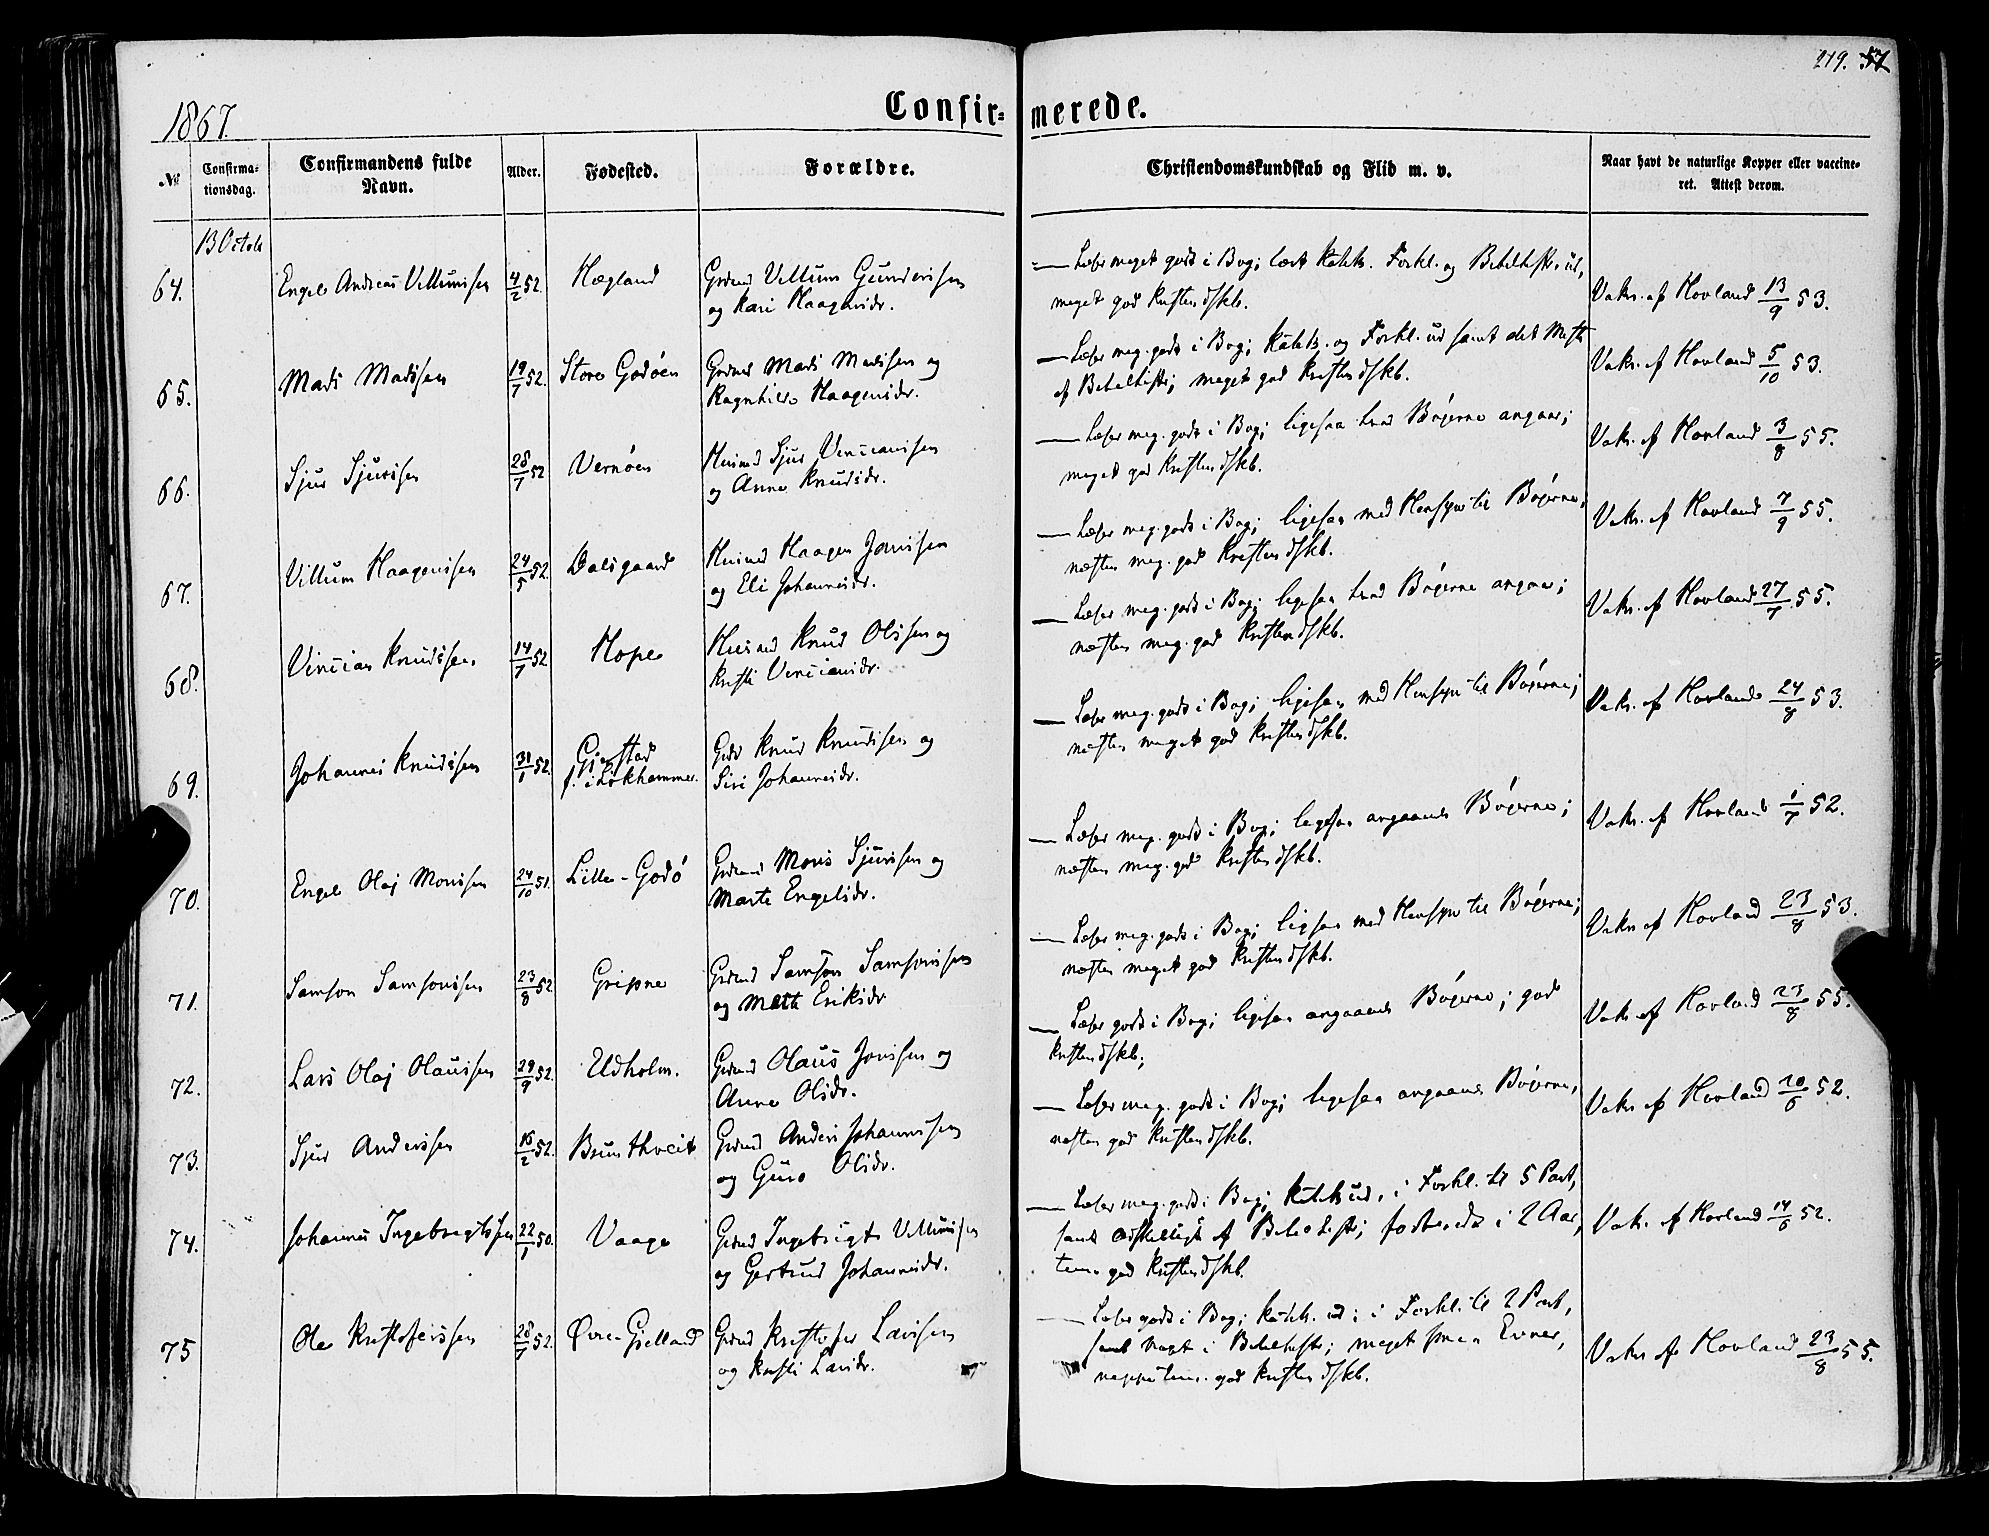 219. 57
1867.
Confir- merede.
№
Confirma-
tionsdag.
Confirmandens fulde
Navn.
Alder.
Fødested.
Forældre.
Christendomskundskab og Flid m. v.
Naar havt de naturlige Kopper eller vaccine-
ret. Attest derom.
13 Octob
64. Engel Andreas Villumsen 4/2 52. Hægland Grdmd Villum Gundersen
og Kari Haagensdr.
— Læser meget godt i Bog; lært Katek. Forkl. og Bibelhistr. ud,
meget god Kristendskb.
Vakn. af Hovland 13/9 53.
65. Mads Madssen 19/7 52. Store Godøen Grdmd Mads Madssen og
Ragnhilde Haagensdr.
— Læser meg. godt i Bog; Katek. og Forkl. ud samt det Meste
af Bibelhistr; meget god Kristendskb.
Vakn. af Hovland 5/10 53.
66. Sjur Sjursen 28/7 52 Vernøen Husmd Sjur Vincianssen
og Anne Knudsdr.
— Læser meg. godt i Bog; ligesaa hvad Bøgerne angaar;
meget god Kristendskb.
Vakn. af Hovland 3/8 55.
67. Villum Haagenssen 24/5 52. Dalsgaard Husmd Haagen Janssen
og Eli Johannesdr.
— Læser meg. godt i Bog; ligesaa med Hensyn til Bøgerne,
næsten meg. god Kristendskb.
Vakn. af Hovland 7/9 55.
68. Vincian Knudssen 14/7 52 Hope Husmd Knud Olssen og
Kristi Vinciansdr.
— Læser meg. godt i Bog; ligesaa hvad Bøgerne angaar;
næsten meg. god Kristendskb.
Vakn. af Hovland 27/7 55.
69. Johannes Knudssen 31/1 52. Gjerstad
f. i Løkhammer. Grdr Knud Knudssen og
Siri Johannesdr.
— Læser meg. godt i Bog; ligesaa med Hensyn til Bøgerne;
næsten meget god Kristendskb.
Vakn. af Hovland 24/8 53.
70. Engel Olaj Monssen 24/10 51. Lille-Godø Grdmd Mons Sjurssen og
Marte Engelsdr.
— Læser meg. godt i Bog; ligesaa angaaende Bøgerne;
næsten meg. god Kristendskb.
Vakn. af Hovland 1/7 52.
71. Samson Samsonssen 23/8 52 Gripne Grdmd Samson Samsonssen
og Mette Eriksdr
— Læser meg. godt i Bog; ligesaa med Hensyn til Bøgerne;
næsten meget god Kristendskb.
Vakn af Hovland 23/8 53.
72. Lars Olaj Olaussen 29/9 52. Udholm. Grdmd Olaus Jonssen og
Anne Olsdr.
— Læser godt i Bog; ligesaa angaaende Bøgerne; god
Kristendskb;
Vakn af Hovland 23/8 55.
73. Sjur Anderssen 16/2 52. Brunthveit Grdmd Anders Johannssen
og Guro Olsdr.
— Læser meg. godt i Bog; ligesaa angaaende Bøgerne,
næsten god Kristendskb.
Vakn af Hovland 10/6 52.
74. Johannes Ingebrigtssen 22/1 50. Vaage Grdmd Ingebrigt Villumssen
og Gertrud Johannesdr.
— Læser meg. godt i Bog; Katek ud, i Forkl. til 5 Part,
samt Adskilligt af Bibelhistr; forberedt i 2 Aar,
tem. god Kristendskb.
Vakn. af Hovland 14/6 52.
75 Ole Kristoferssen 28/7 52. Øvre-Gjelland Grdmd Kristofer Larssen
og Kristi Larsdr.
— Læser godt i Bog; Katek. ud; i Forkl. til 2 Part,
samt Noget i Bibelhistr; meget smaa Evner,
neppe tem. god Kristendskb.
Vakn af Hovland 23/8 55.